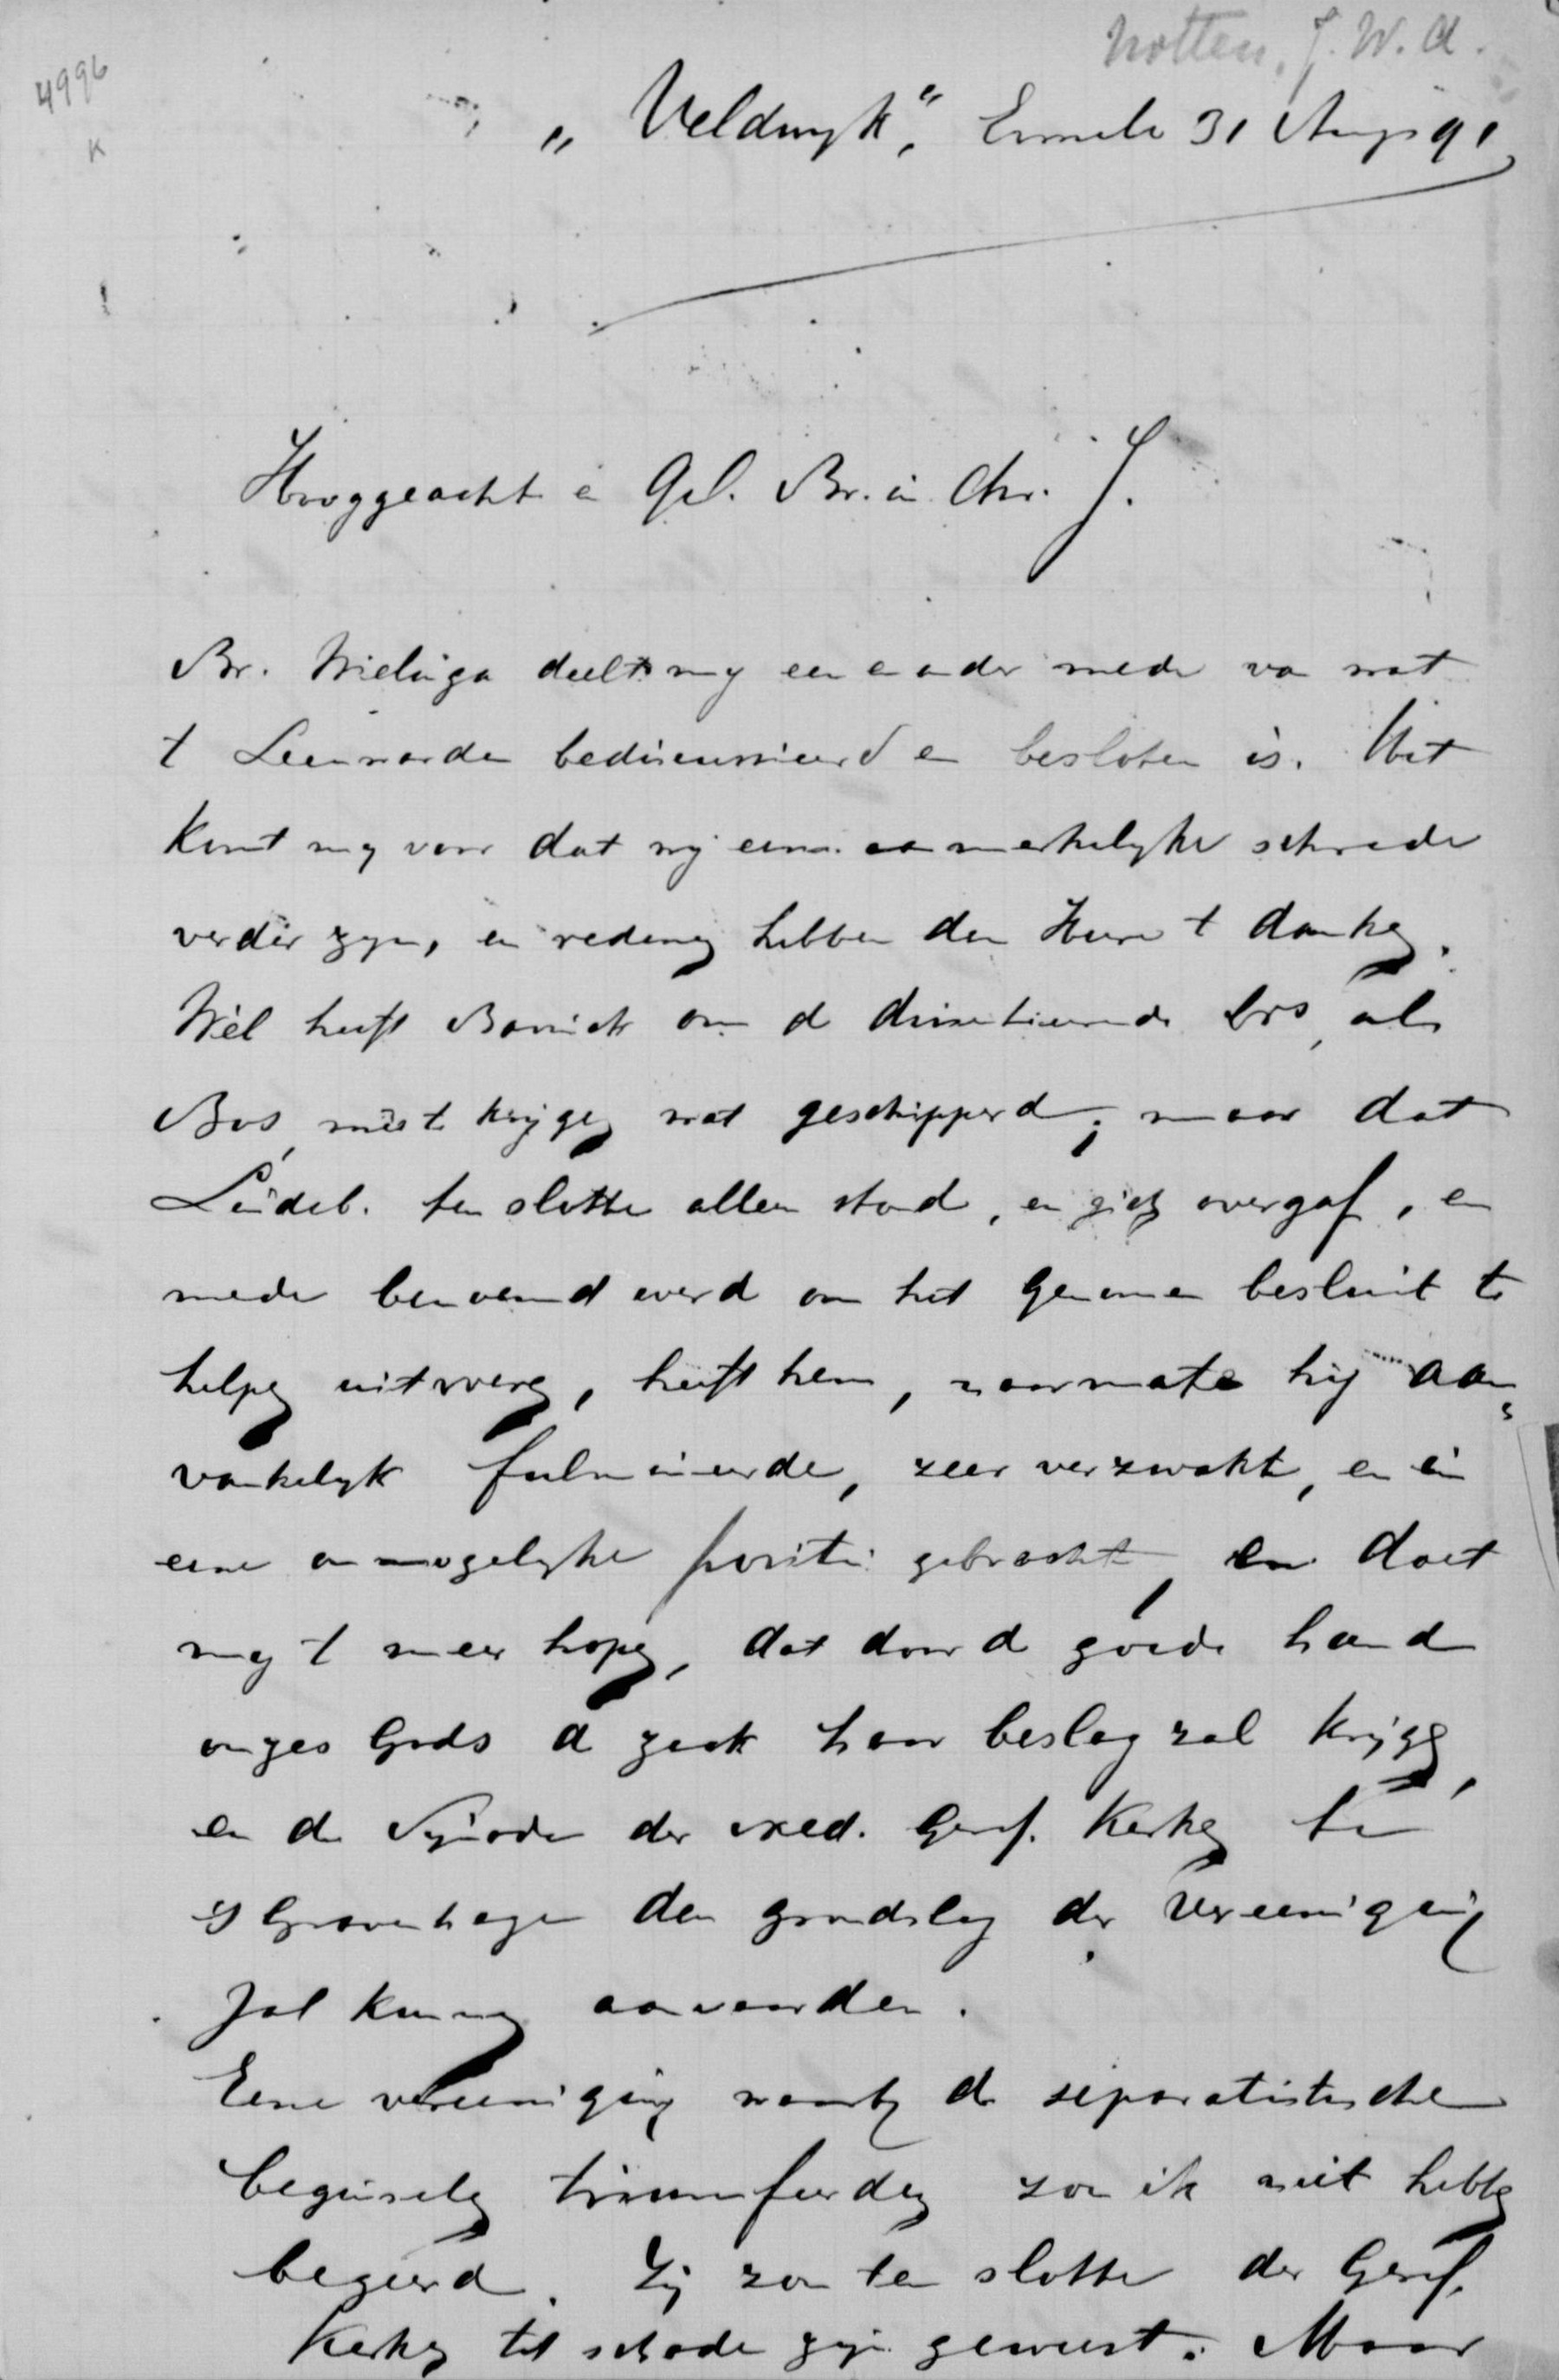 Notten, J. W. A.
4996
K
„ Veldwyk", Ermelo 31 Aug 91
Hooggeachte en Gel. Br. in Chr. J.
Br. Wielinga deelt my een en ander mede van wat
te Leeuwarden bediscussieerd en besloten is. Het
komt my voor dat wy eene aanmerkelyke schrede
verder zyn, en redenen hebben den Heere te danken.
Wel heeft Bavinck om de dissentieerende brs, als
Bos, mee te krygen wat geschipperd; maar dat
Lindeb. ten slotte alleen stond, en zich overgaf, en
mede benoemd werd om het genomen besluit te
helpen uitvoeren, heeft hem, naarmate hij aan-
vankelyk fulmineerde, zeer verzwakt, en in
eene onmogelyke positie gebracht, en doet
my te meer hopen, dat door de goede hand
onzes Gods de zaak haar beslag zal krygen,
en de Synode der Ned. Geref. Kerken te
s Gravenhage den grondslag der Vereeniging
zal kunnen aanvaarden.
Eene vereeniging waarby de separatistische
beginselen triumfeerden zou ik niet hebben
begeerd. Zij zou ten slotte der Geref.
Kerken tot schade zyn geweest. Maar